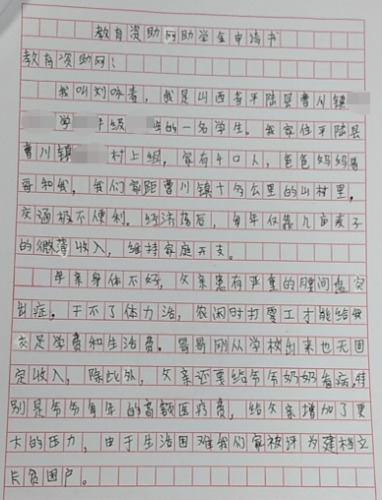 教育资助网助学金申请书
教育资助网：
我叫刘咏春，我是山西省平陆县曹川镇
学 年级 班的一名学生。我家住平陆县
曹川镇 村上组，家有4口人，爸爸妈妈哥
哥和我，我们家距曹川镇十多公里的山村里。
交通极不便利。经济落后，每年仅靠几亩麦子
的微薄收入，维持家庭开支。
母亲身体不好，父亲患有严重的腰间盘突
出症。干不了体力活，农闲时打零工才能给我
交足学费和生活费。哥哥刚从学校出来也无固
定收入，除此外，父亲还要给爷爷奶奶看病，特
别是爷爷每年的高额医疗费，给父亲增加了更
大的压力，由于生活困难我们家被评为建档立
卡贫困户。